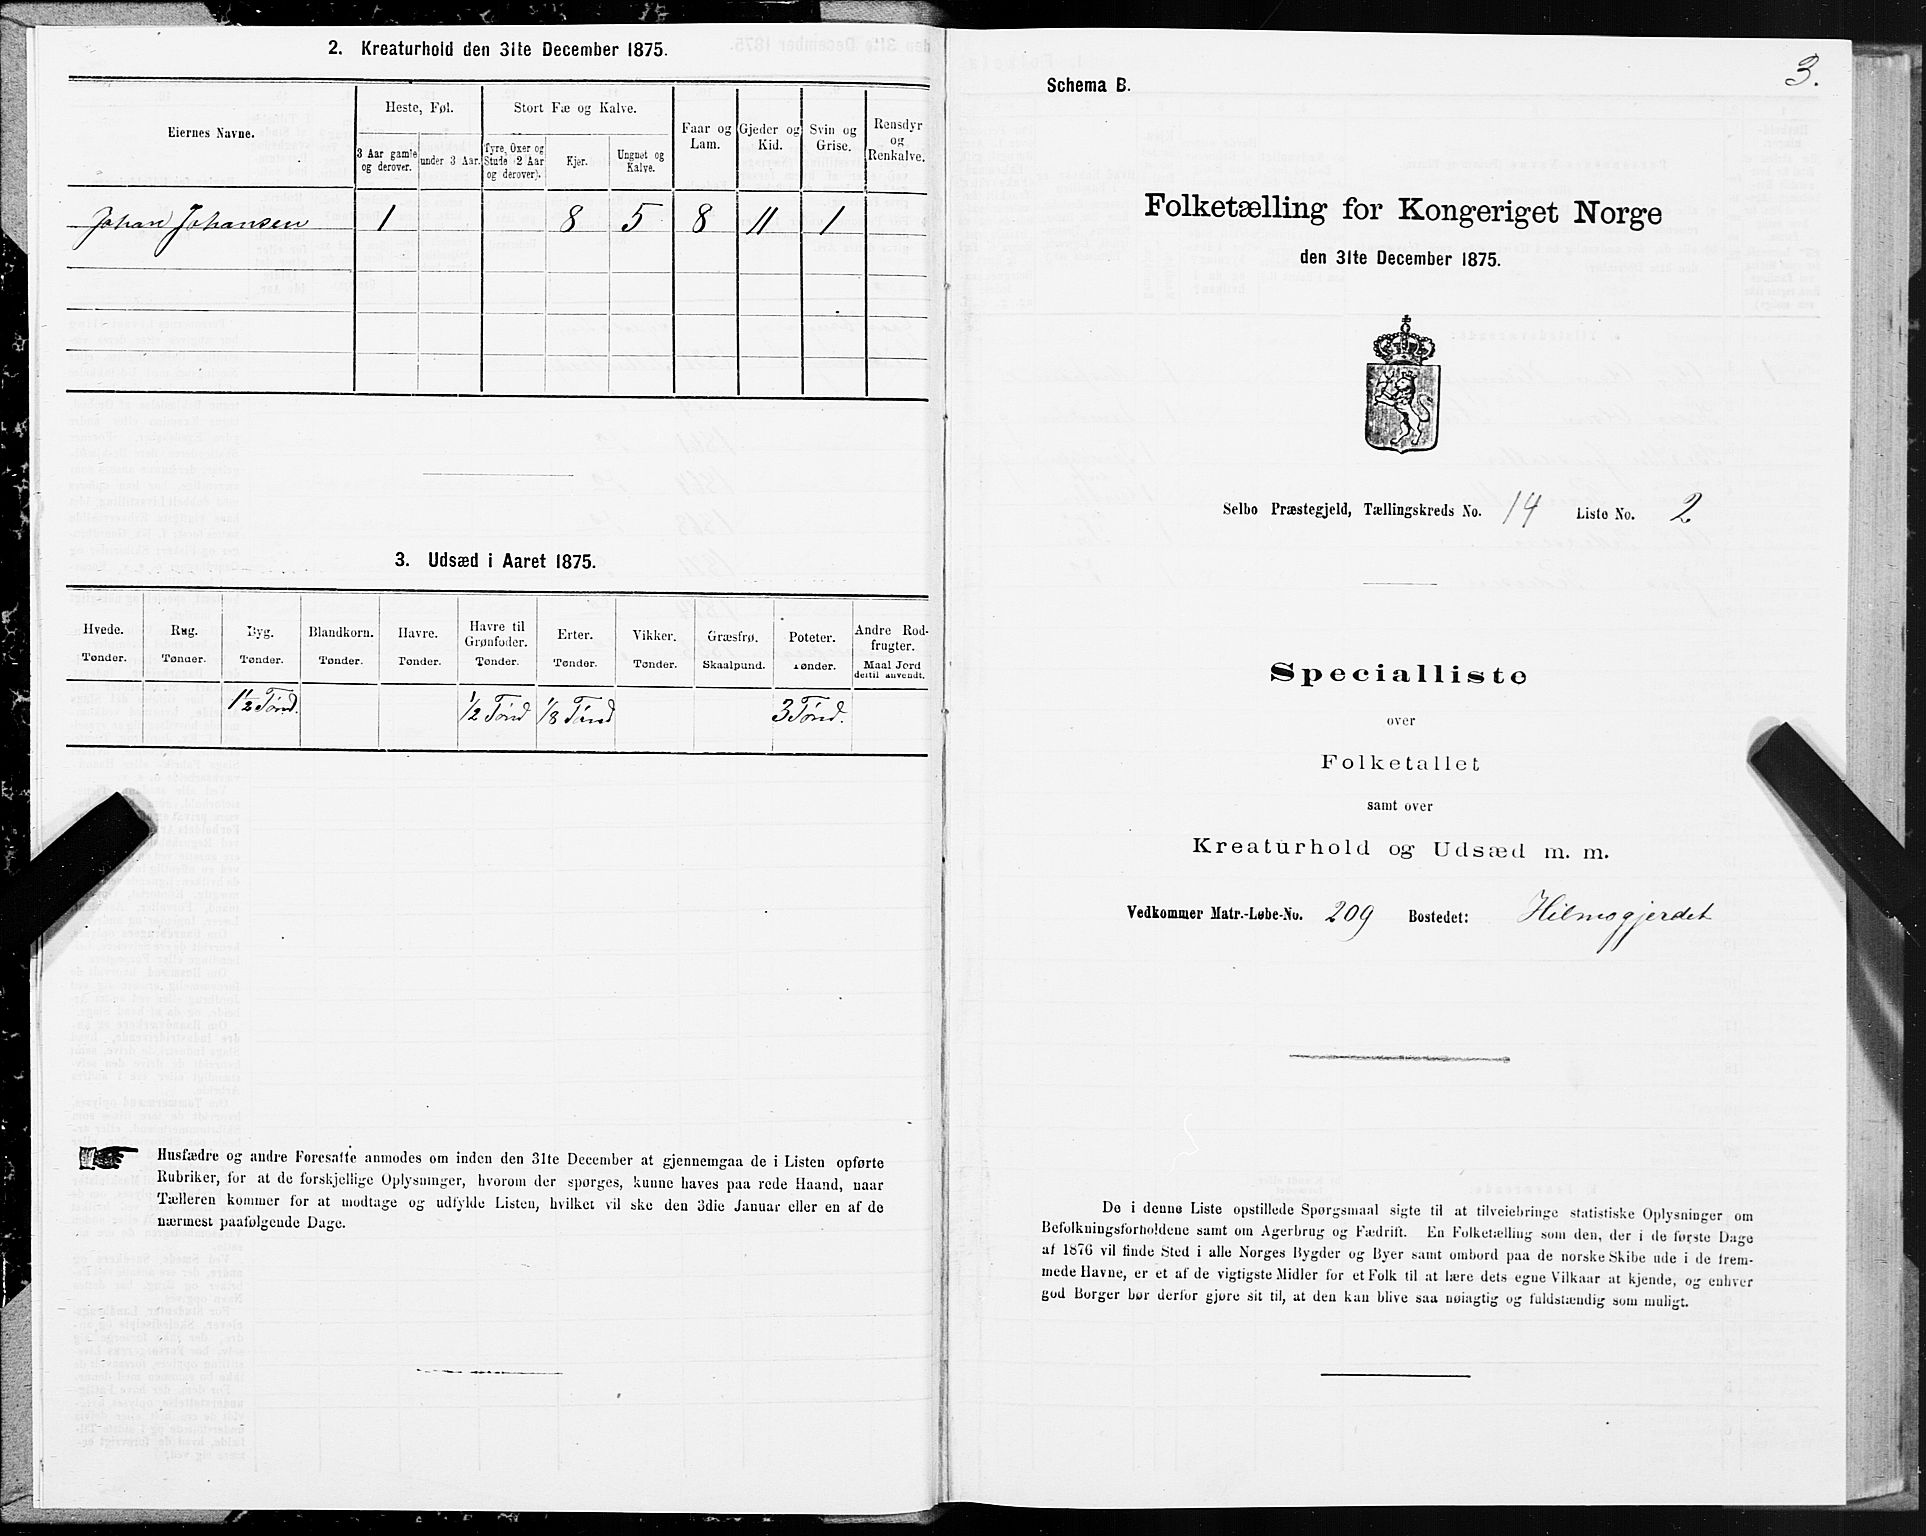 2. Kreaturhold den 31te December 1875.
Eiernes Navne.
Heste, Føl.
Stort Fæ og Kalve.
Faar og Lam.
Gjeder og Kid.
Svin og Grise.
Rensdyr og Renkalve.
3 Aar gamle og derover.
under 3 Aar.
Tyre, Oxer og Stude (2 Aar og derover).
Kjer.
Ungnet og Kalve.
Johan Johansen 1 8 5 8 11 1
3. Udsæd i Aaret 1875.
Hvede. Rug. Byg. Blandkorn. Havre. Havre til Grønfoder. Erter. Vikker. Græsfrø. Poteter. Andre Rodfrugter.
Tønder. Tønder. Tønder. Tønder. Tønder. Tønder. Tønder. Tønder. Skaalpund. Tønder. Maal Jord dertil anvendt.
1½ Tønd. ½ Tønd ⅛ Tønd 3 Tønd.
Husfædre og andre Foresatte anmodes om inden den 31te December at gjennemgaa de i Listen opførte
Rubriker, for at de forskjellige Oplysninger, hvorom der spørges, kunne haves paa rede Haand, naar
Tælleren kommer for at modtage og udfylde Listen, hvilket vil ske den 3die Januar eller en af de
nærmest paafølgende Dage.
3.
Schema B.
Folketælling for Kongeriget Norge
den 31te December 1875.
Selbo Præstegjeld, Tællingskreds No. 14 Liste No. 2
Specialliste
over
Folketallet
samt over
Kreaturhold og Udsæd m. m.
Vedkommer Matr.-Løbe-No. 209 Bostedet: Hilmogjerdet
De i denne Liste opstillede Spørgsmaal sigte til at tilveiebringe statistiske Oplysninger om
Befolkningsforholdene samt om Agerbrug og Fædrift. En Folketælling som den, der i de første Dage
af 1876 vil finde Sted i alle Norges Bygder og Byer samt ombord paa de norske Skibe ude i de frem-
mede Havne, er et af de vigtigste Midler for et Folk til at lære dets egne Vilkaar at kjende, og enhver
god Borger bør derfor gjøre sit til, at den kan blive saa nøiagtig og fuldstændig som muligt.